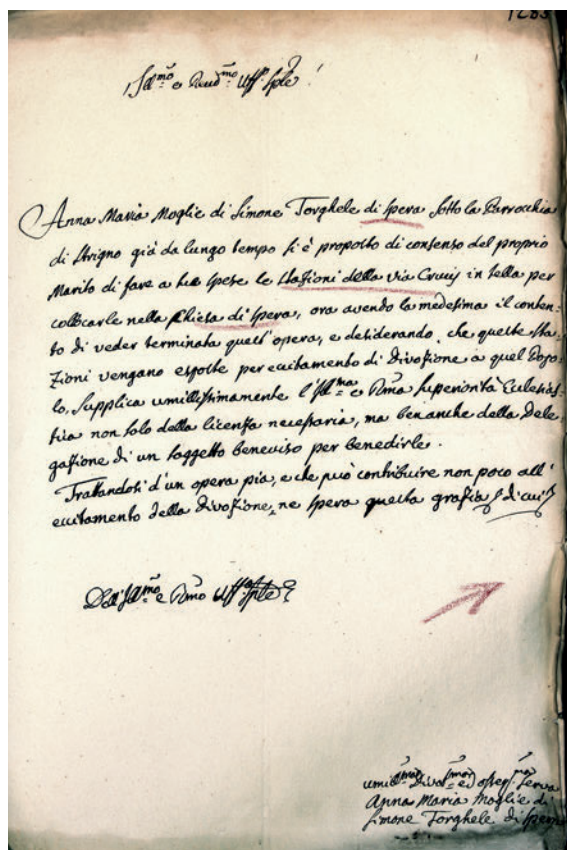 1285
Ill.mo e Rend.mo Uff.o Sple!
Anna Maria Moglie di Simone Torghele di Spera sotto la Parrochia
di Strigno già da lungo tempo si è proposto di consenso del proprio
Marito di fare a sue spese le Stazioni della via Crucis in tella per
collocarle nella Chiesa di Spera, ora avendo la medesima il conten-
to di veder terminata quest'opera, e desiderando, che queste Sta-
zioni vengano esposte per eccitamento di divozione a quel Popo-
lo, supplica umilissimamente l'Ill.ma e R.ma Superiorità Eclesias-
tica non solo della licenza necessaria, ma ben anche della Dele-
gazione di un soggetto beneviso per benedirle.
Trattandosi d'un opera pia, e che può contribuire non poco all'
eccitamento della divozione, ne spera questa grazia di cui
Dell'Ill.mo e R.mo Uff.o Sple
umil.ma Divot.ma ed osseq.ma serva
Anna Maria Moglie di
Simone Torghele di Spera